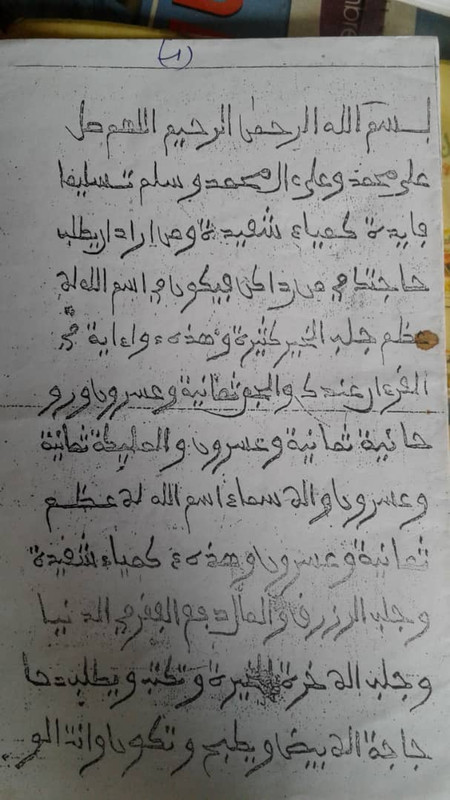 (1)
بسم الله الرحمن الرحيم اللهم صل
على محمد وعلى ال محمد وسلم تسليما
فايدة كمياء شفيدة ومن اراد ان يطلب
حاجته من فيكون في اسم الله له
عظم جلب الخير كثيرة وهذه واءاية في
القرءان عندك والجو ثمانية وعسرون ورو
حانية ثمانية وعسرون والخليطة ثمانية
وعسرون واله سماء اسم الله له عظم
ثمانية وعسرون وهذه كمياء شفيدة
وجلب الرزرق والمال دفع الفقر في الدنيا
وجلب اله خرة وتكتب ويطلب دحا
جاجة اله بيض ويطبح وتكون وانت الو